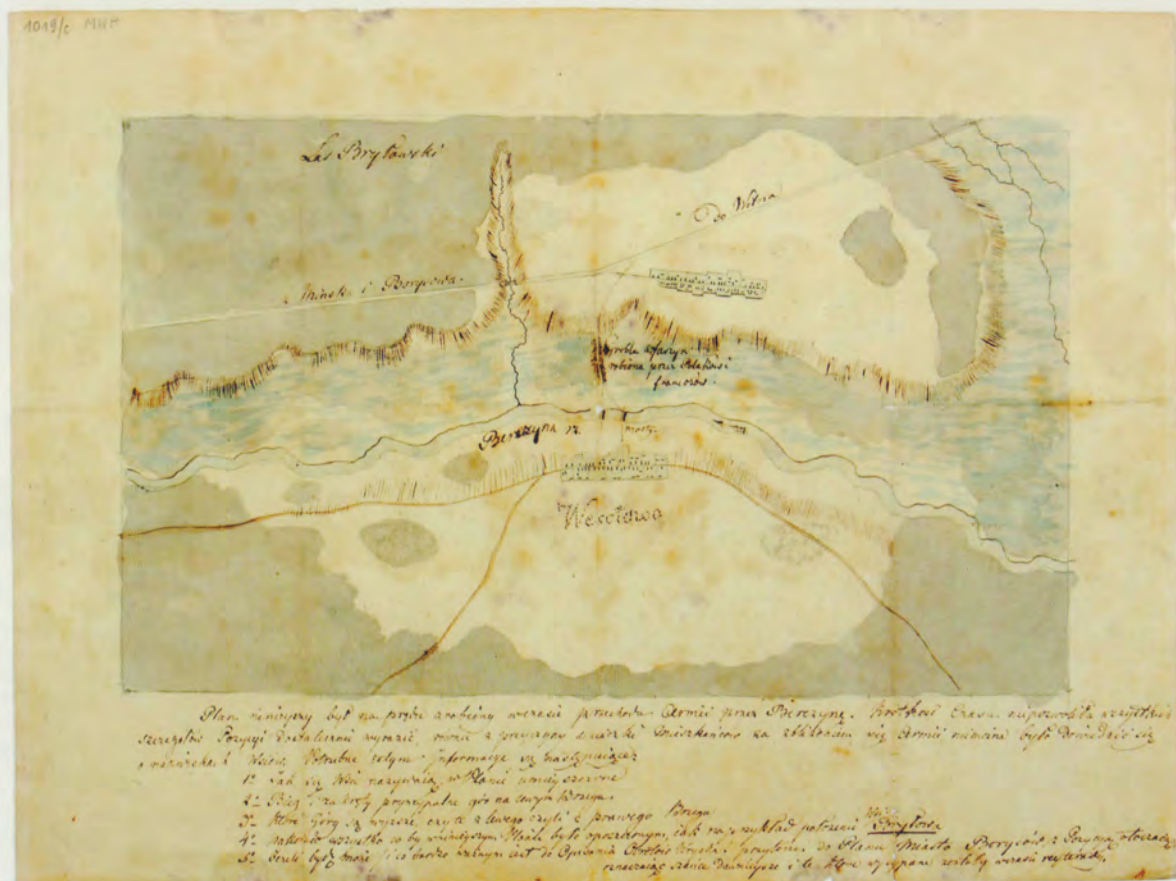 1019/c MNK
Las Bryłowski
Do Wilna
z Mińska i Borysowa.
grobla z faszyn
robiona przez Polaków i
francuzów.
Berezyna rz.
mosty
Weselowa
Plan niniejszy był na prędce zrobiony wczasie przechodu Armii przez Berezynę. Krótkość czasu niepozwoliła wszystkich
szczegułów Pozycyi dostatecznie wyrazić, również z przyczyny ucieczki mieszkańców za zbliżeniem się Armii niemożna było dowiedzieć się
o nazwiskach Wsiów. Potrzebne zatym informacye są następujące
1° Jak się Wsie nazywaią w Planie umieszczone
2° Bieg i zakręty pryncypalne gór na lewym brzegu.
3° Które Góry są wyższe, czyli z lewego czyli z prawego Brzegu
4° nakoniec wszystko co by w niniejszym Planie było opuszczonym, jak na przykład położenie Wsi Bryłowa
5° Jeżeli być może i co bardzo ważnym iest do Opisania Obrotów Woyska, Planu Miasta Borysów z Pozycyą
oznaczaiąc szańce dawnieysze i te które wysypane zostały wczasie reyterady.